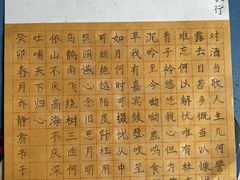 行
对酒当歌人生几何譬
露去日苦多慨当以慷
难忘何以解忧唯有杜
青子衿悠悠我心但为
沉吟至今呦呦鹿鸣食
苹我有嘉宾鼓瑟吹笙
如月何时可掇忧从中
断绝越陌度阡枉用
阔谈讌心念旧恩月明
乌鹊南飞绕树三匝何
山不厌高海不厌深
吐哺天下归心
癸卯春月乔静书于